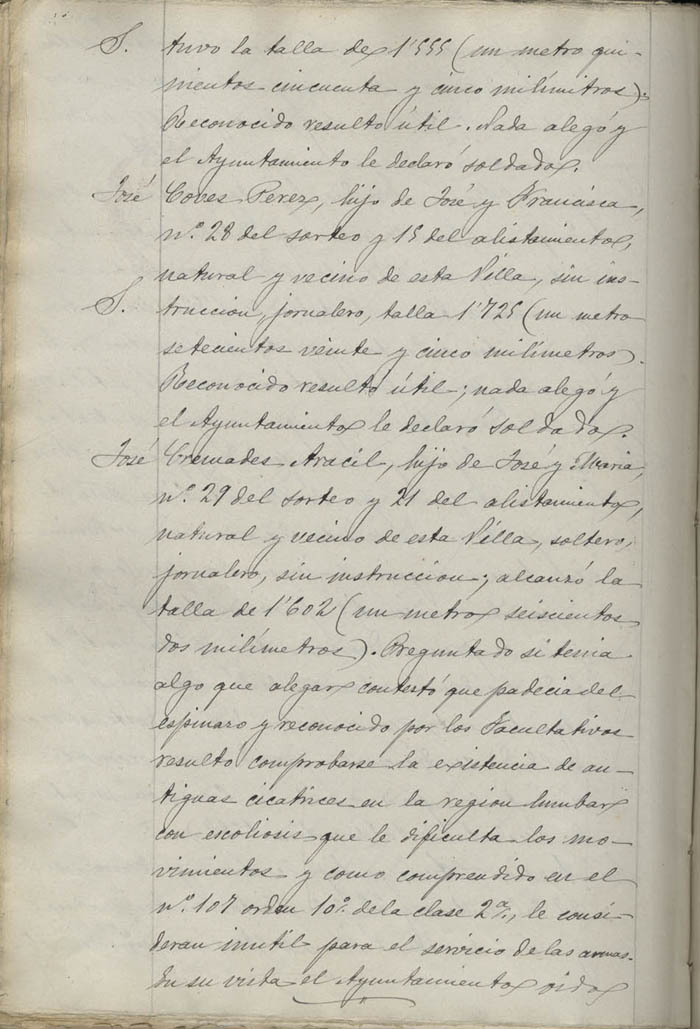 S. tuvo la talla de 1'555 (un metro qui-
nientos cincuenta y cinco milímitros).
Reconocido resulto útil. Nada alegó y
el Ayuntamiento le declaró soldado.
José Coves Perez, hijo de José y Francisca,
n.º 28 del sorteo y 15 del alistamiento,
natural y vecino de esta Villa, sin ins-
S. truccion, jornalero, talla 1'725 (un metro
setecientos veinte y cinco milímetros).
Reconocido resulto útil; nada alegó y
el Ayuntamiento le declaró soldado.
José Cremades Aracil, hijo de José y Maria,
n.º 29 del sorteo y 21 del alistamiento,
natural y vecino de esta Villa, soltero,
jornalero, sin instruccion; alcanzó la
talla de 1'602 (un metro seiscientos
dos milímetros). Preguntado si tenia
algo que alegar contestó que padecia del
espinazo y reconocido por los Facultativos
resulto comprobarse la existencia de an-
tiguas cicatrices en la region lumbar
con escoliosis que le dificulta los mo-
vimientos y como comprendido en el
n.º 107 orden 10.º de la clase 2.ª, le consi-
deran inutil para el servicio de las armas.
En su vista el Ayuntamiento oido